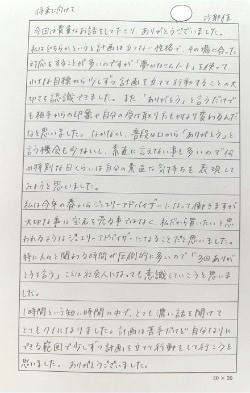 将来に向けて
今回は貴重なお話をして下さりありがとうございました。
私はどちらかというと計画は立てない性格で、その場に合った
対応をすることが多いのですが「夢が叶うノート」を使って
小さな目標から少しずつ計画を立てて行動することの大
切でも認識できました。また「ありがとう」と言うだけで
も相手からの印象や自分の受け取り方もかなり変わるんだ
なと思いました。なかなか、普段口から「ありがとう」と
言う機会も少ないし、素直に言えない事も多いので何
か特別な日くらいは自分の素直な気持ちを表現して
みようと思いました。
私は今年の春からジュエリーアドバイザーになって働きますが
大切な事は宝石を売る事ではなく、私だから買いたいと思
われるようなジュエリーアドバイザーになることだと思いました。
特に人と関わる時間が圧倒的に多いので「3回ありが
とうと言う」ことは社会人になっても意識していこうと思いま
した。
1時間という短い時間の中で、とても濃い話を聞けて
とてもタメになりました。計画は苦手だけど自分なりに
できる範囲で少しずつ計画を立てて行動をして行こうと
思いました。ありがとうございました。
20×20